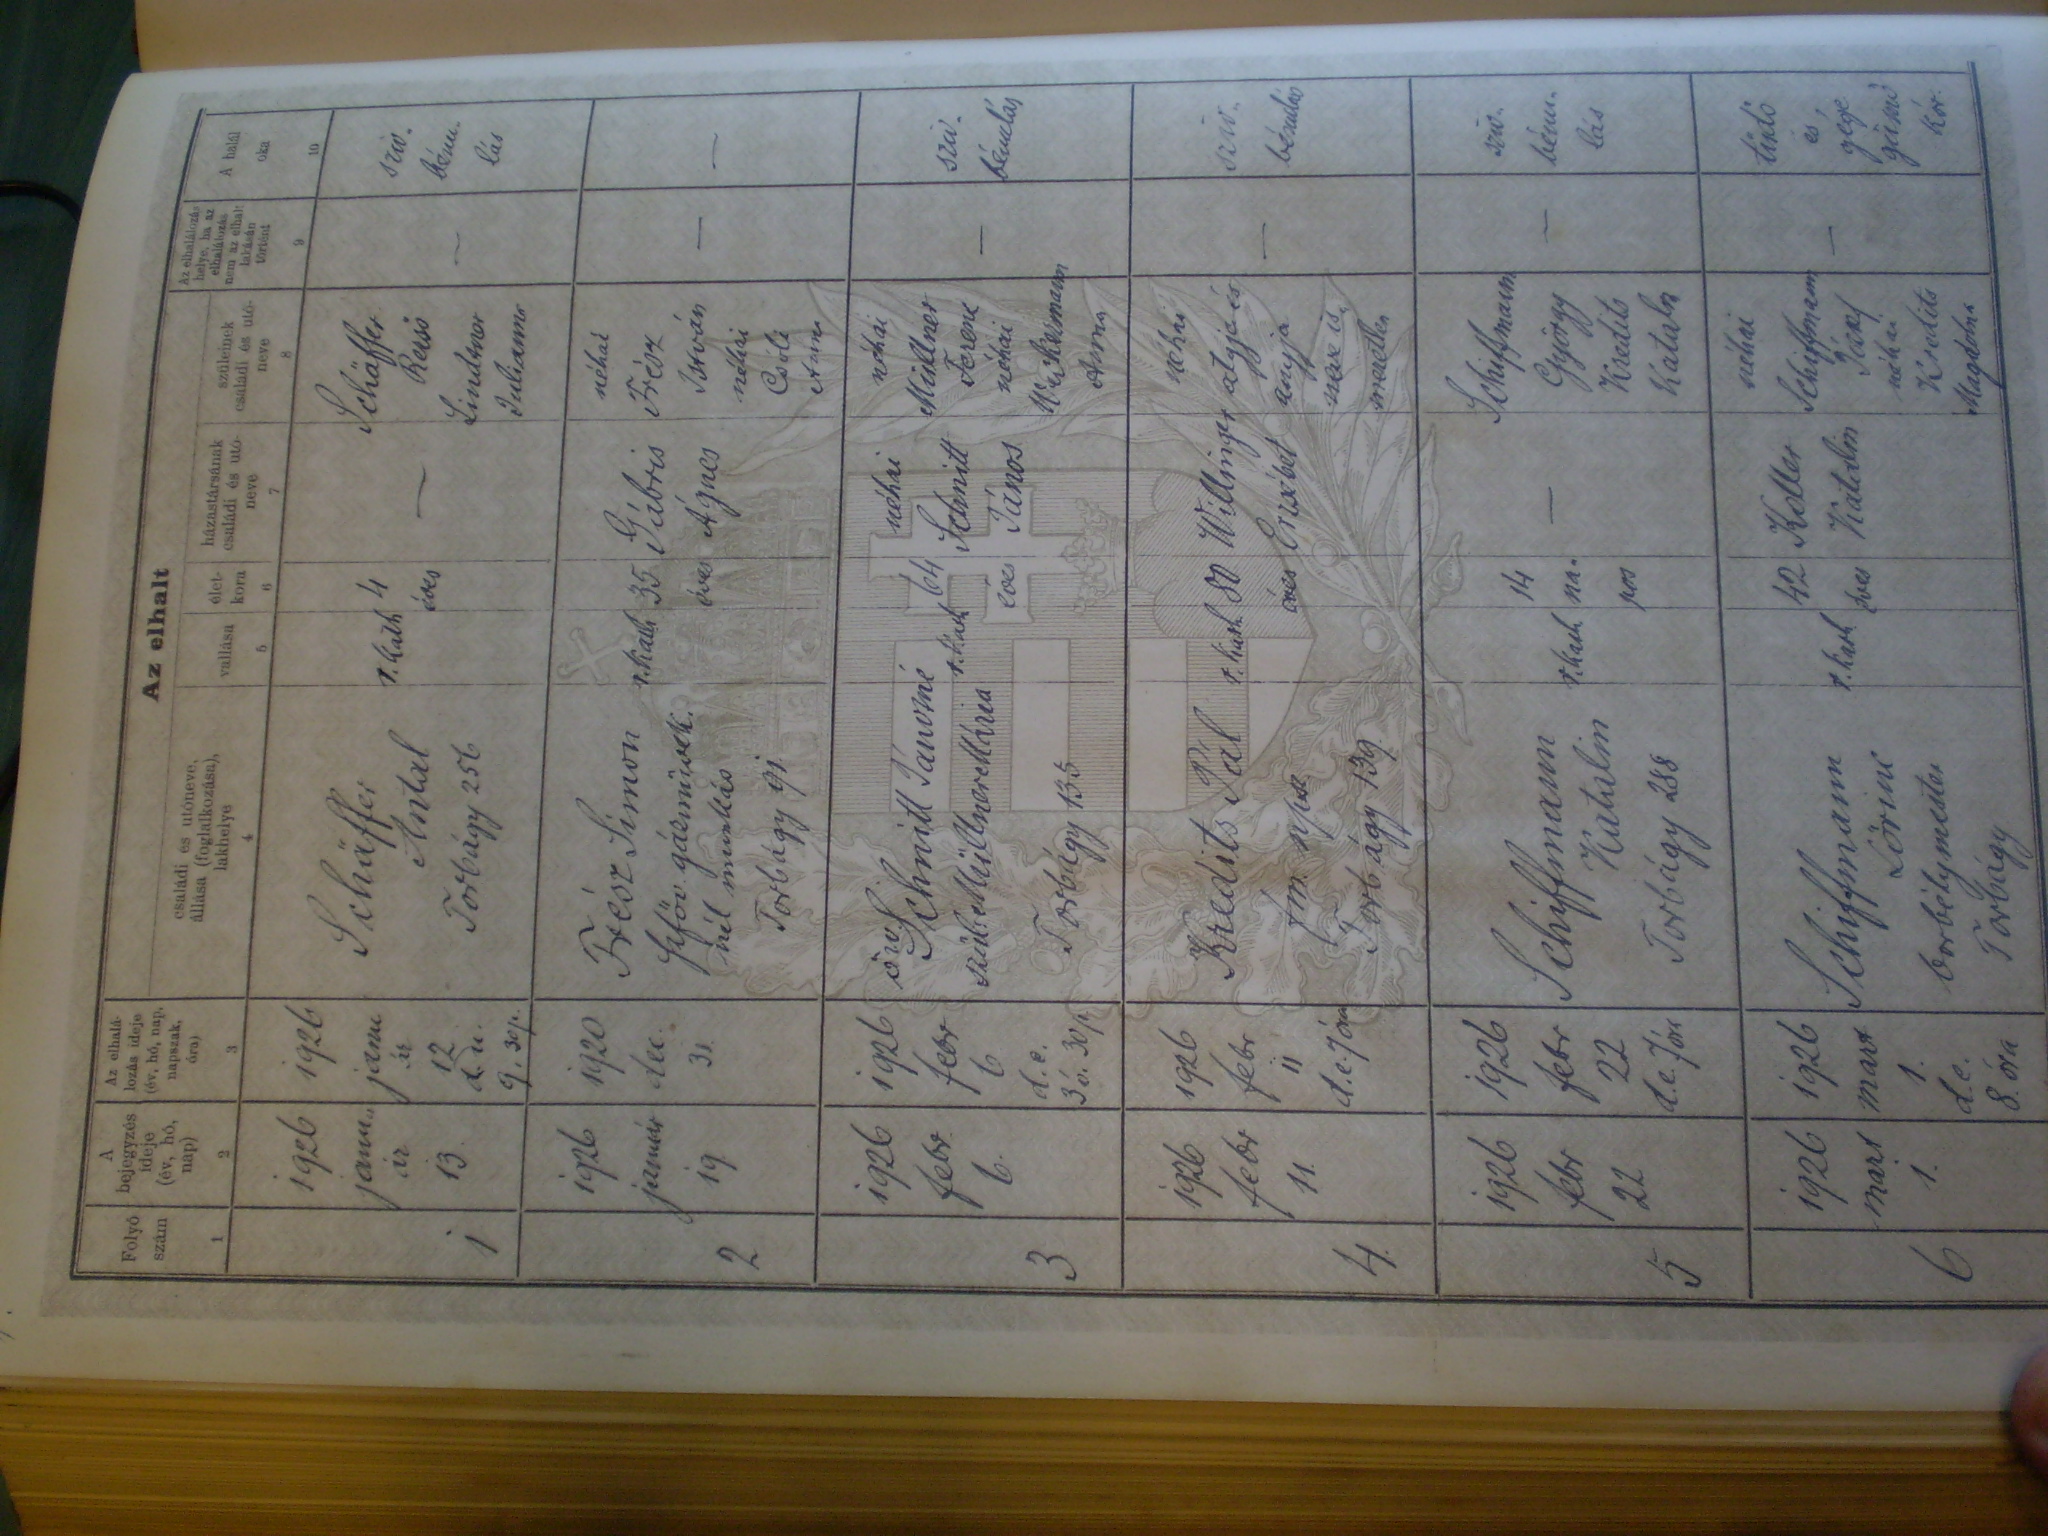 Az elhalt
Folyó szám
A bejegyzés ideje (év, hó, nap)
Az elhalálozás ideje (év, hó, nap, napszak, óra)
családi és utóneve, állása (foglalkozása), lakhelye
vallása
életkora
házastársának családi és utóneve
szüleinek családi és utóneve
Az elhalálozás helye, ha az elhalálozás nem az elhalt lakásán történt
A halál oka
1 2 3 4 5 6 7 8 9 10
1
1926
január
13.
1926
január
12
d.u.
9. 30p.
Schäffer
Antal
Torbágy 256
r. kath
4
éves
—
Schäffer
Rezső
Lindmer
Julianna
—
szív-
bénu-
lás
2
1926
január
19.
1920
dec.
31.
Trész Simon
gázművek-
nél munkás
Torbágy 91.
r. kath
35
éves
Gábris
Ágnes
néhai
Trész
István
néhai
Csóli
Anna
—
—
3
1926
febr.
6.
1926
febr
6
d.e.
3 ó. 30p
özv. Schmitt Jánosné
szül: Müllner Mária
Torbágy 135
r. kath
64
éves
néhai
Schmitt
János
néhai
Müllner
Ferenc
néhai
Anna
—
szív-
bénulás
4.
1926
febr
11.
1926
febr
11
d.e. 7 óra
Kredits Pál
fm. nps.
Torbágy 139.
r. kath.
80
éves
Willinger
Erzsébet
néhai
atyja és
anyja
neve is-
meretlen
—
szív-
bénulás
5
1926
febr
22
1926
febr
22
d.e. 7 óra
Schiffmann
Katalin
Torbágy 288
r. kath
14
na-
pos
—
Schiffmann
György
Kredits
Katalin
—
szív-
bénu-
lás
6
1926
márt
1.
1926
márt
1.
d.e.
8. óra
Schiffmann
Lőrinc
borbélymester
Torbágy
r. kath
42
éves
Koller
Katalin
néhai
Schiffmann
József
néhai
Kredits
Magdolna
—
tüdő
és
gége
gümő
kór.